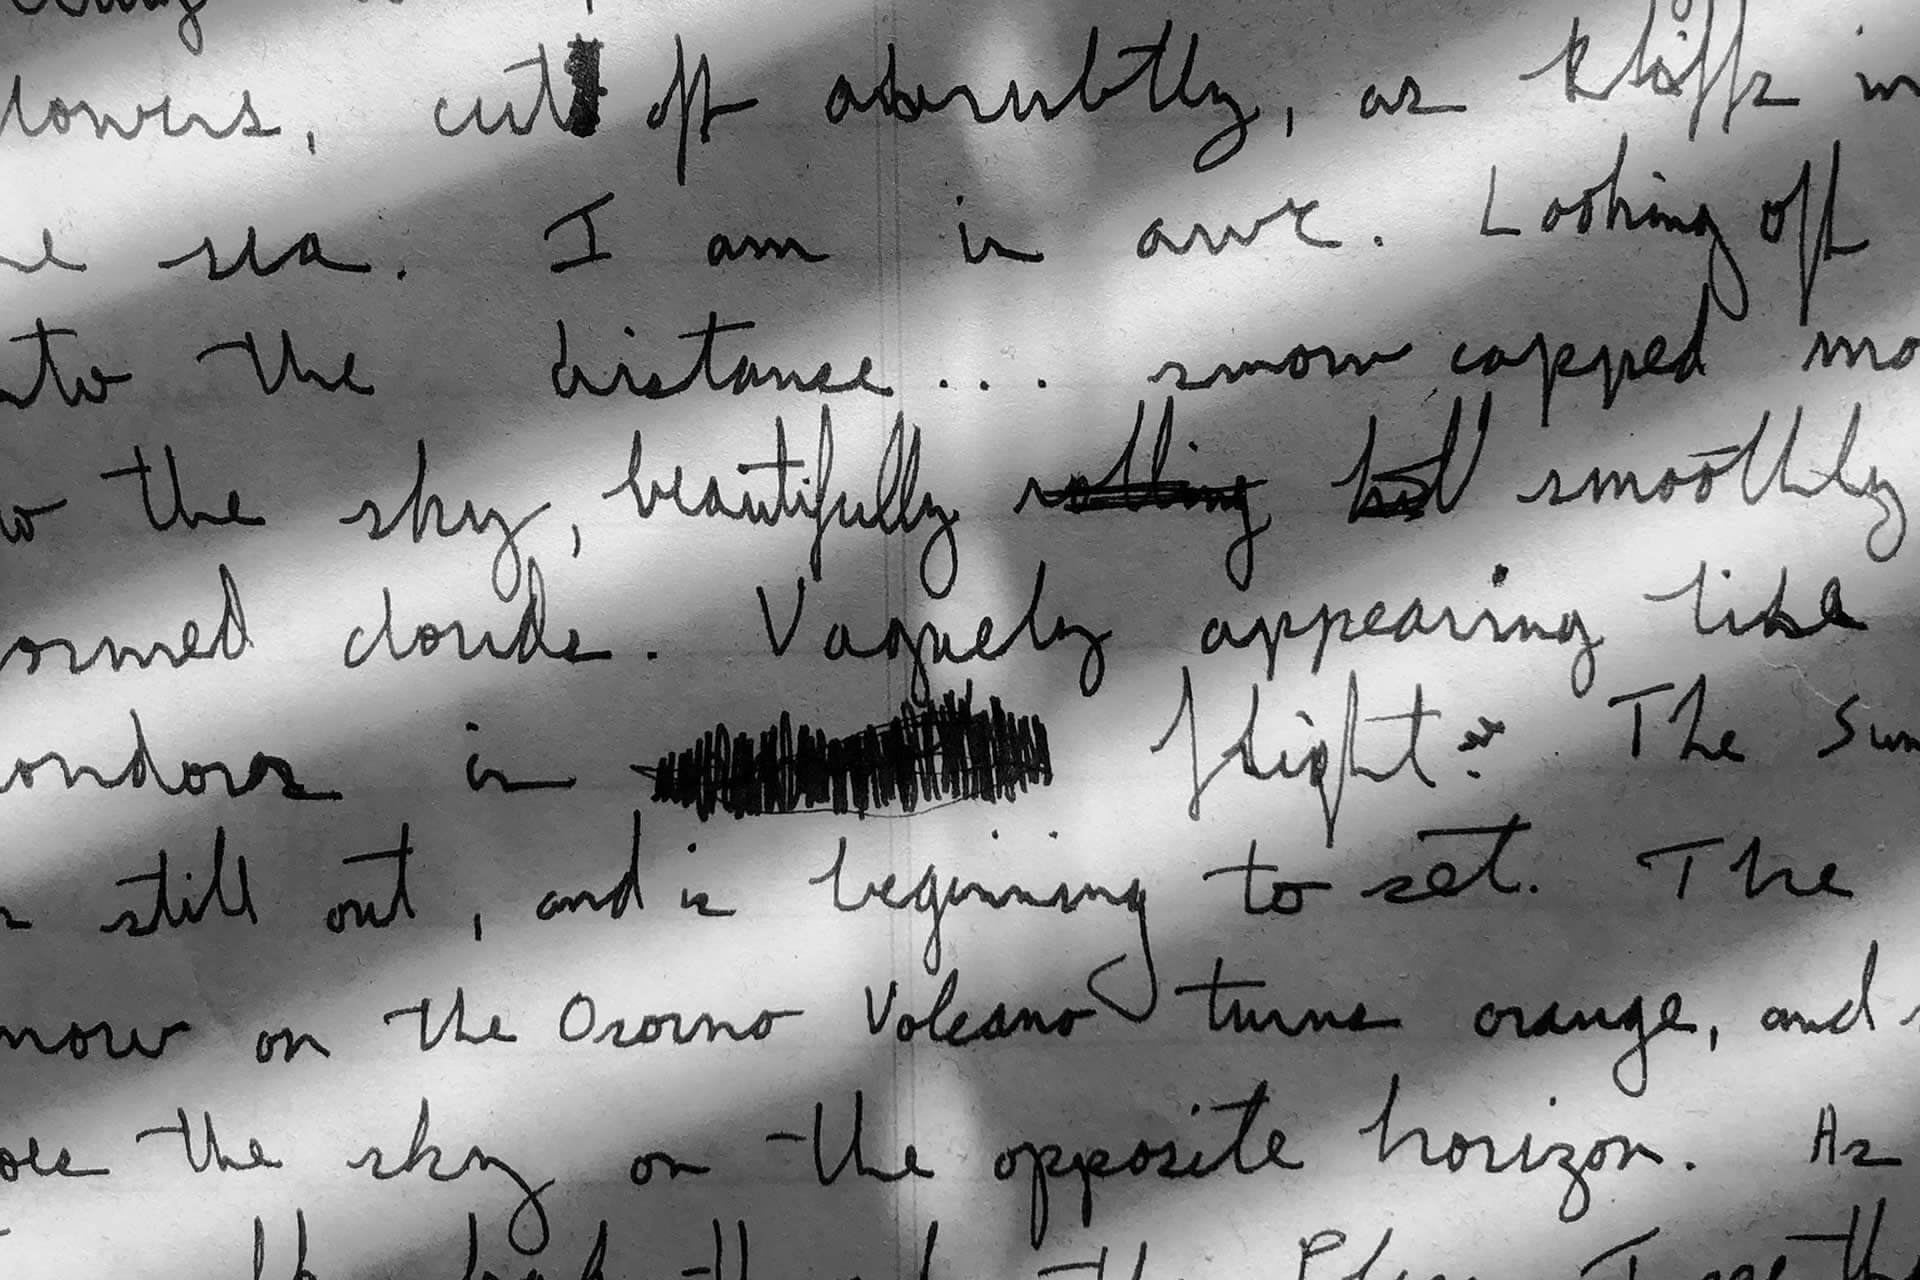 lowers, cut off abrubtly, as kliffs in
he sea. I am in awe. Looking off
nto the distance... snow capped mo
the sky, beautifully rolling but smoothly
ormed clouds. Vaguely appearing like
ondors in flight. The Sun
still out, and is beginning to set. The
now on the Osorno Volcano turns orange, and
the sky on the opposite horizon. As